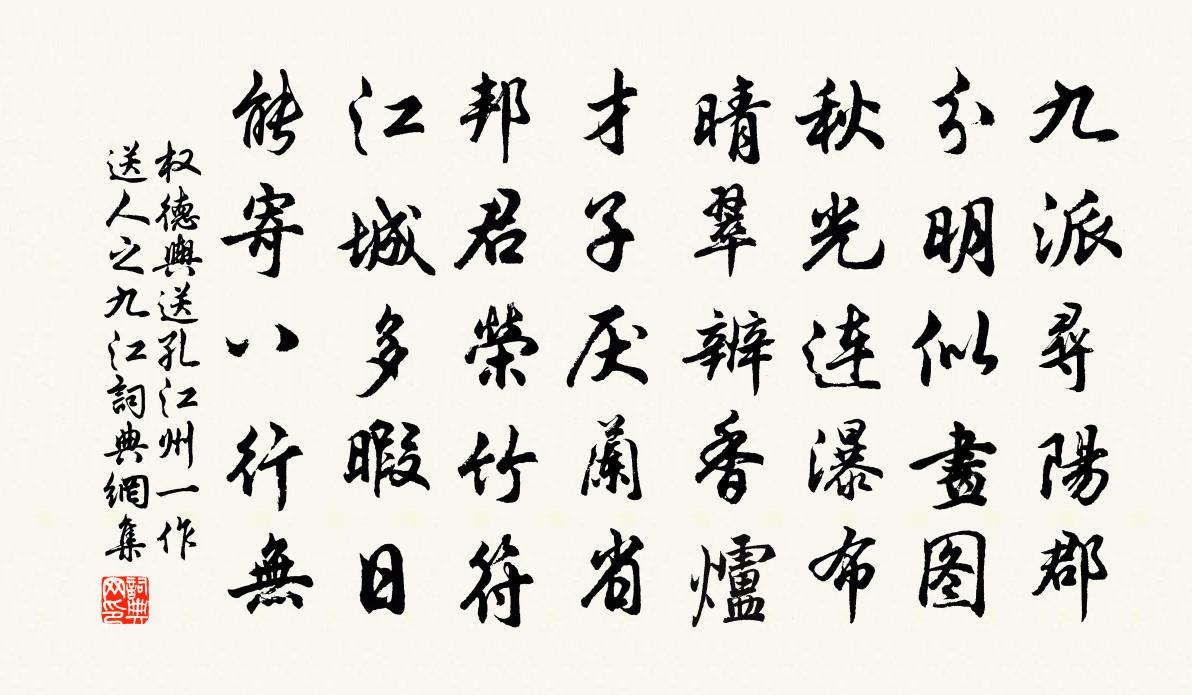 九派尋陽郡
分明似畫图
秋光連瀑布
晴翠辨香爐
才子厌蘭省
邦君榮竹符
江城多暇日
能寄八行無
权德輿送孔江州一作
送人之九江詞典網集
詞典网印